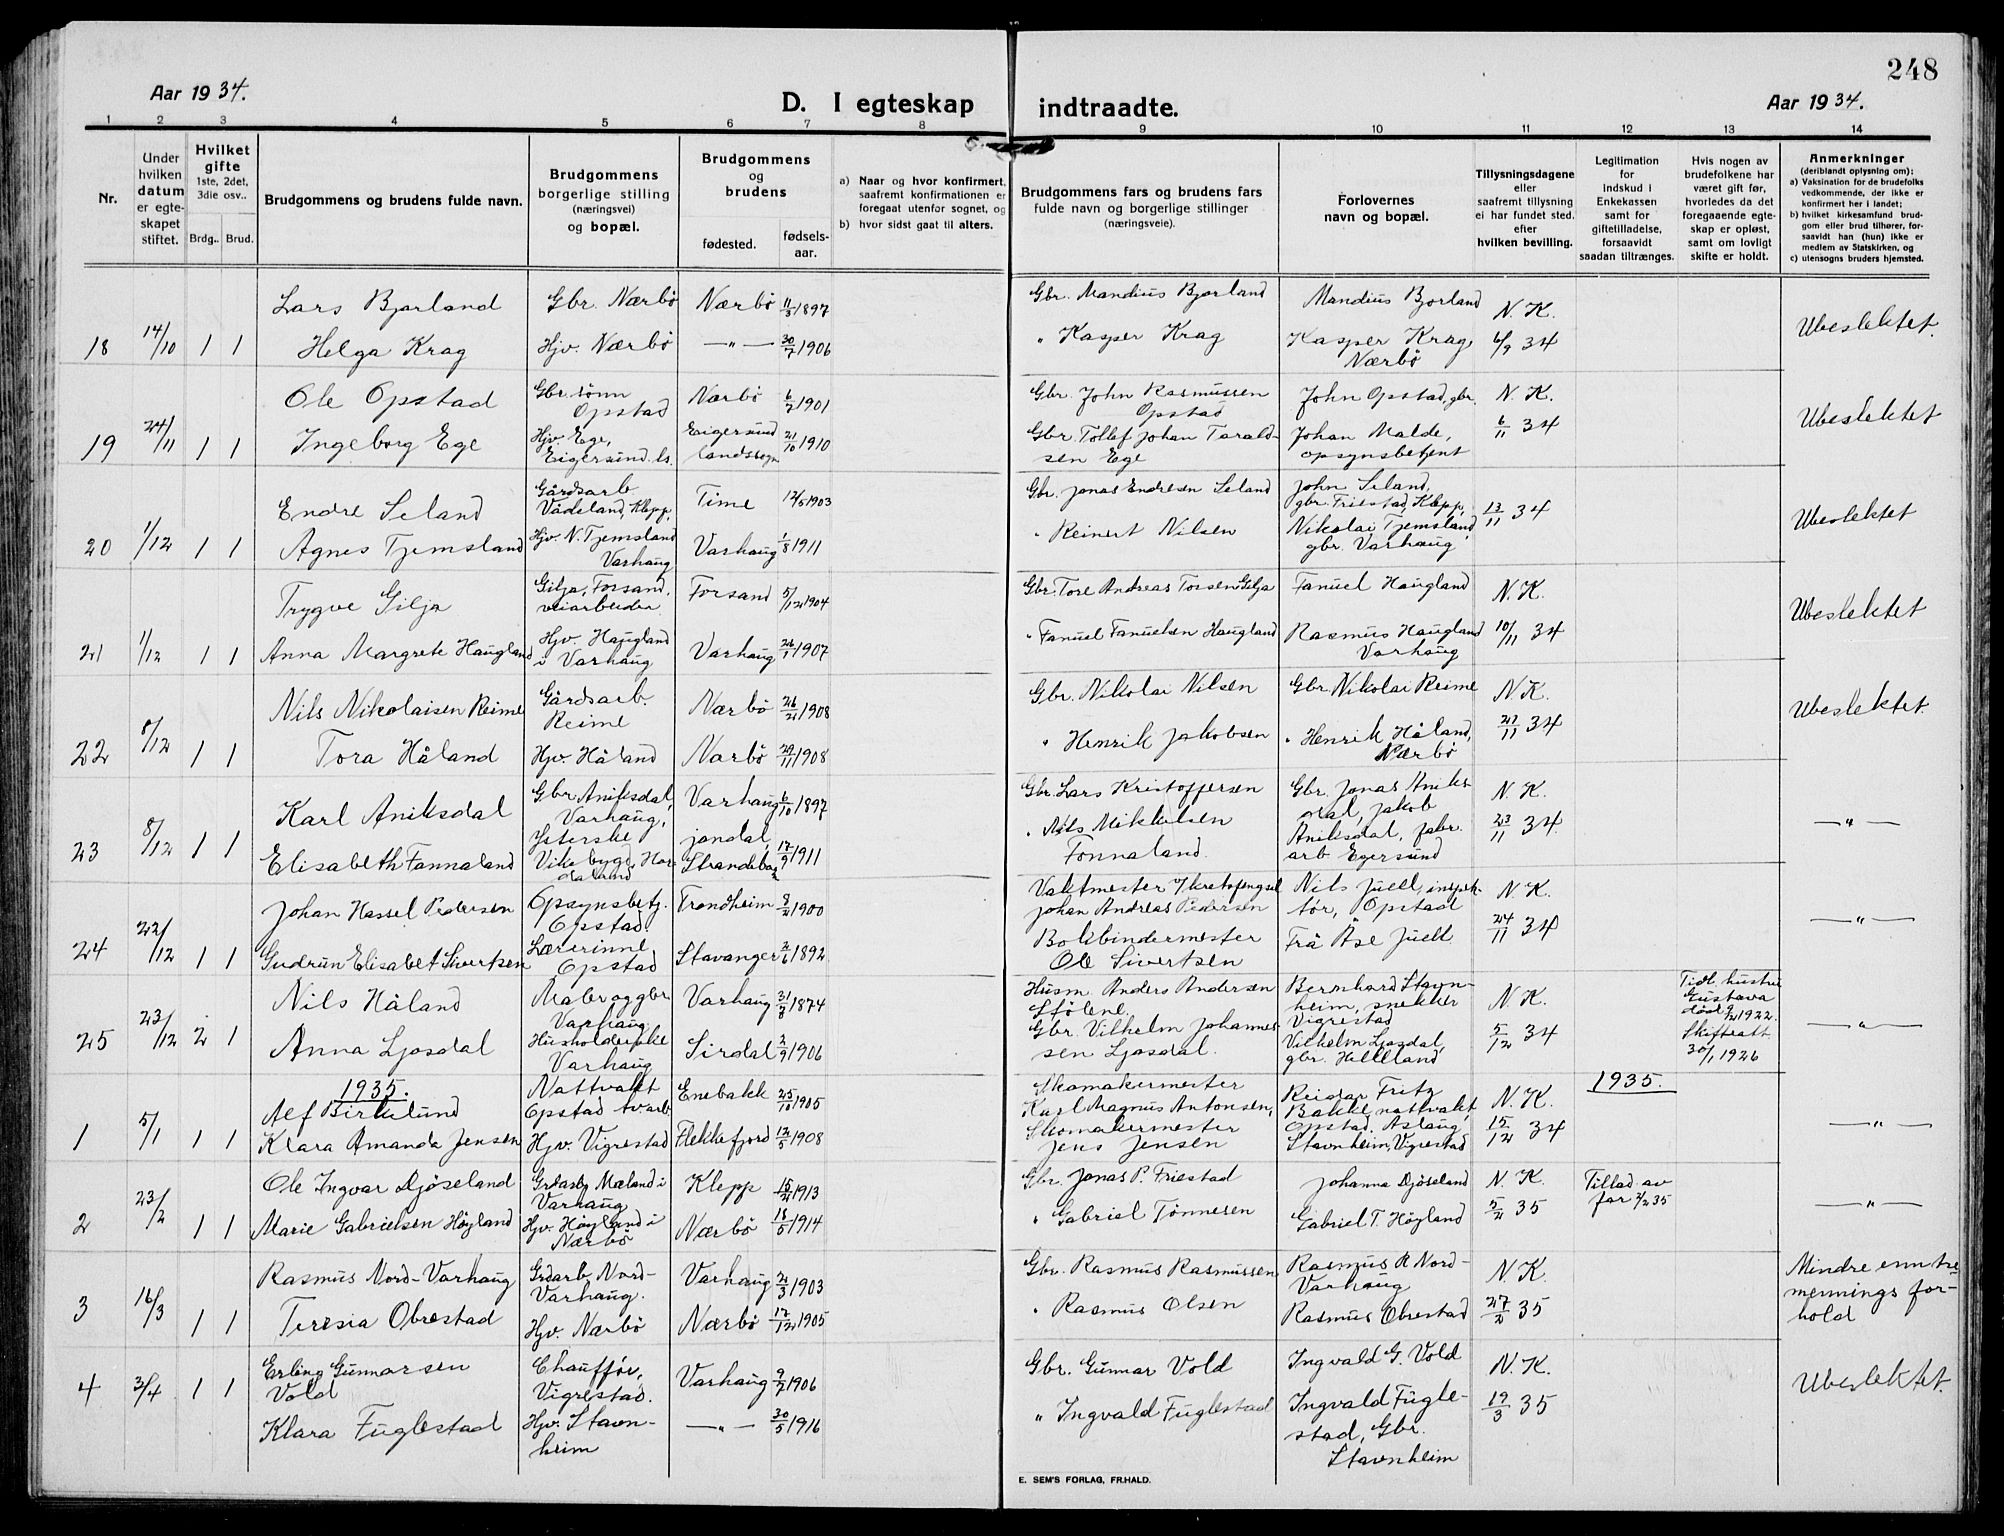 248
Aar 1934.
D. I egteskap indtraadte.
Aar 1934.
1 2 3 4 5 6 7 8 9 10 11 12 13 14
Nr.
Under hvilken datum er egteskapet stiftet.
Hvilket gifte
1ste, 2det, 3die osv..
Brdg.. Brud.
Brudgommens og brudens fulde navn.
Brudgommens borgerlige stilling (næringsvei) og bopæl.
Brudgommens og brudens
fødested.
fødselsaar.
a) Naar og hvor konfirmert, saafremt konfirmationen er foregaat utenfor sognet, og
b) hvor sidst gaat til alters.
Brudgommens fars og brudens fars fulde navn og borgerlige stillinger (næringsveie).
Forlovernes navn og bopæl.
Tillysningsdagene eller saafremt tillysning ei har fundet sted. efter hvilken bevilling.
Legitimation for Indskud i Enkekassen samt for giftetilladelse, forsaavidt saadan tiltrænges.
Hvis nogen av brudefolkene har været gift før, hvorledes da det foregaaende egteskap er opløst, samt om lovligt skifte er holdt.
Anmerkninger (deriblandt oplysning om):
a) Vaksination for de brudefolks vedkommende, der ikke er konfirmert her i landet;
b) hvilket kirkesamfund brudgom eller brud tilhører, forsaavidt han (hun) ikke er medlem av Statskirken, og
c) utensogns bruders hjemsted.
18 14/10 1 1
Lars Bjorland Gbr. Nærbö Nærbö 11/3 1897 Gbr. Mandius Bjorland Mandius Bjorland N. K.
Helga Krag Hjv. Nærbö —"— 30/7 1906 " Kasper Krag Kasper Krag, Nærbö 6/9 34 Ubeslektet.
19 24/11 1 1
Ole Opstad Gbr. sönn Opstad Nærbö 6/7 1901 Gbr. John Rasmussen Opstad John Opstad, gbr. N. K.
Ingeborg Ege Hjv. Ege, Eigersund ls. Eigersund landssogn 21/10 1910 Gbr. Tollef Johan Taraldsen Ege Johan Malde, opsynsbetjent 6/11 34 Ubeslektet
20 1/12 1 1
Endre Seland Gårdsarb Vådeland, Klepp, Time 12/5 1903 Gbr. Jonas Endresen Seland John Seland, gbr. Friestad, Klepp,
Agnes Tjemsland Hjv. N. Tjemsland Varhaug Varhaug 1/8 1911 " Reinert Nilsen Nikolai Tjemsland gbr. Varhaug 13/11 34 Ubeslektet
21 1/12 1 1
Trygve Gilja Gilja, Forsand, veiarbeider Forsand 5/12 1904 Gbr. Tore Andreas Torsen Gilja Fanuel Haugland N. K.
Anna Margrete Haugland Hjv. Haugland i Varhaug Varhaug 26/1 1907 " Fanuel Fanuelsen Haugland Rasmus Haugland Varhaug 10/11 34 Ubeslektet
22 8/12 1 1
Nils Nikolaisen Reime Gårdsarb. Reime Nærbö 26/2 1908 Gbr. Nikolai Nilsen Gbr. Nikolai Reime N. K.
Tora Håland Hjv. Håland Nærbö 29/11 1908 " Henrik Jakobsen " Henrik Håland, Nærbö 21/11 34 Ubeslektet.
23 8/12 1 1
Karl Aniksdal Gbr. Aniksdal, Varhaug, Varhaug 6/10 1897 Gbr. Lars Kristoffersen Gbr. Jonas Aniksdal, Jakob N. K.
Elisabeth Fannaland Vikebygd, Hordaland Strandebarm 17/9 1911 " Nils Mikkelsen Fonnaland. Aniksdal, fabr. arb Egersund 23/11 34 —"—
24 22/12 1 1
Johan Hassel Pedersen Opsynsbetj. Opstad. Trondheim 8/2 1900 Vaktmester v/ kretsfengsel Johan Andreas Pedersen Nils Juell, inspektör, Opstad N. K.
Gudrun Elisabet Sivertsen Lærerinne Opstad Stavanger 2/6 1892 Bokbindermester Ole Sivertsen Fru Åse Juell 24/11 34 —"—
25 23/12 2 1
Nils Håland Maler og gbr. Varhaug Varhaug 31/3 1874 Husm. Anders Andersen Stölene. Bernhard Stavnheim, snekker Vigrestad N. K. Tidl. hustru Gustava död 9/2 1922. Skifteatt. 30/1 1926
Anna Ljosdal Husholderske Varhaug Sirdal 2/9 1906 Gbr. Vilhelm Johannessen Ljosdal. Vilhelm Ljosdal, gbr. Helleland 5/12 34 —"—
1935. 1935.
1 5/1 1 1
Alf Birklund Nattvakt Opstad tvarb Enebakk 25/10 1905 Skomakermester Karl Magnus Antonsen, Reidar Fritz Bakke, nattvakt, Opstad. N. K.
Klara Amanda Jensen Hjv. Vigrestad Flekkefjord 12/5 1908 Skomakermester Jens Jensen Aslaug Stavnheim, Vigrestad 15/12 34 —"—
2 23/2 1 1
Ole Ingvar Djöseland Grdarb. Mæland i Varhaug Klepp 15/2 1913 Gbr. Jonas P. Friestad Johanna Djöseland N. K. Tillad av far 2/2 35
Marie Gabrielsen Höyland Hjv. Höyland i Nærbö Nærbö 18/5 1914 " Gabriel Tönnesen Gabriel T. Höyland 5/2 35 —"—
3 16/3 1 1
Rasmus Nord-Varhaug Grdarb. Nord-Varhaug. Varhaug 21/3 1903 Gbr. Rasmus Rasmussen Rasmus R Nord-Varhaug N. K. Mindre enn tremennings forhold
Teresia Obrestad Hjv. Nærbö Nærbö 17/12 1905 " Rasmus Olsen Rasmus Obrestad 27/2 35
4 3/4 1 1
Erling Gunnarsen Vold Chaufför, Vigrestad. Varhaug 9/7 1906 Gbr. Gunnar Vold Ingvald G. Vold N. K. Ubeslektet.
Klara Fuglestad Hjv. Stavnheim —"— 30/5 1916 " Ingvald Fuglestad Ingvald Fuglestad, Gbr. Stavnheim 19/3 35
E. SEM'S FORLAG, FR.HALD.